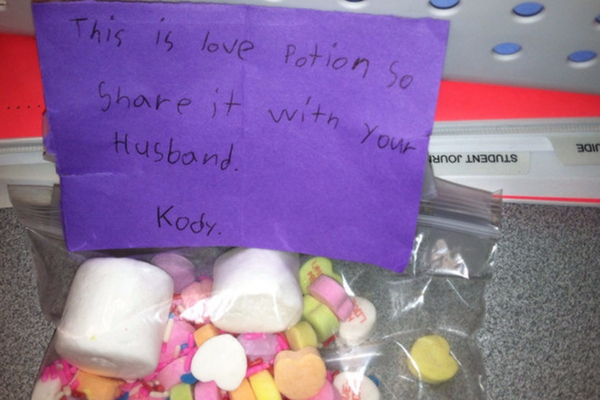 This is love Potion So
Share it with your
Husband.
Kody.
STUDENT JOUR
UIDE